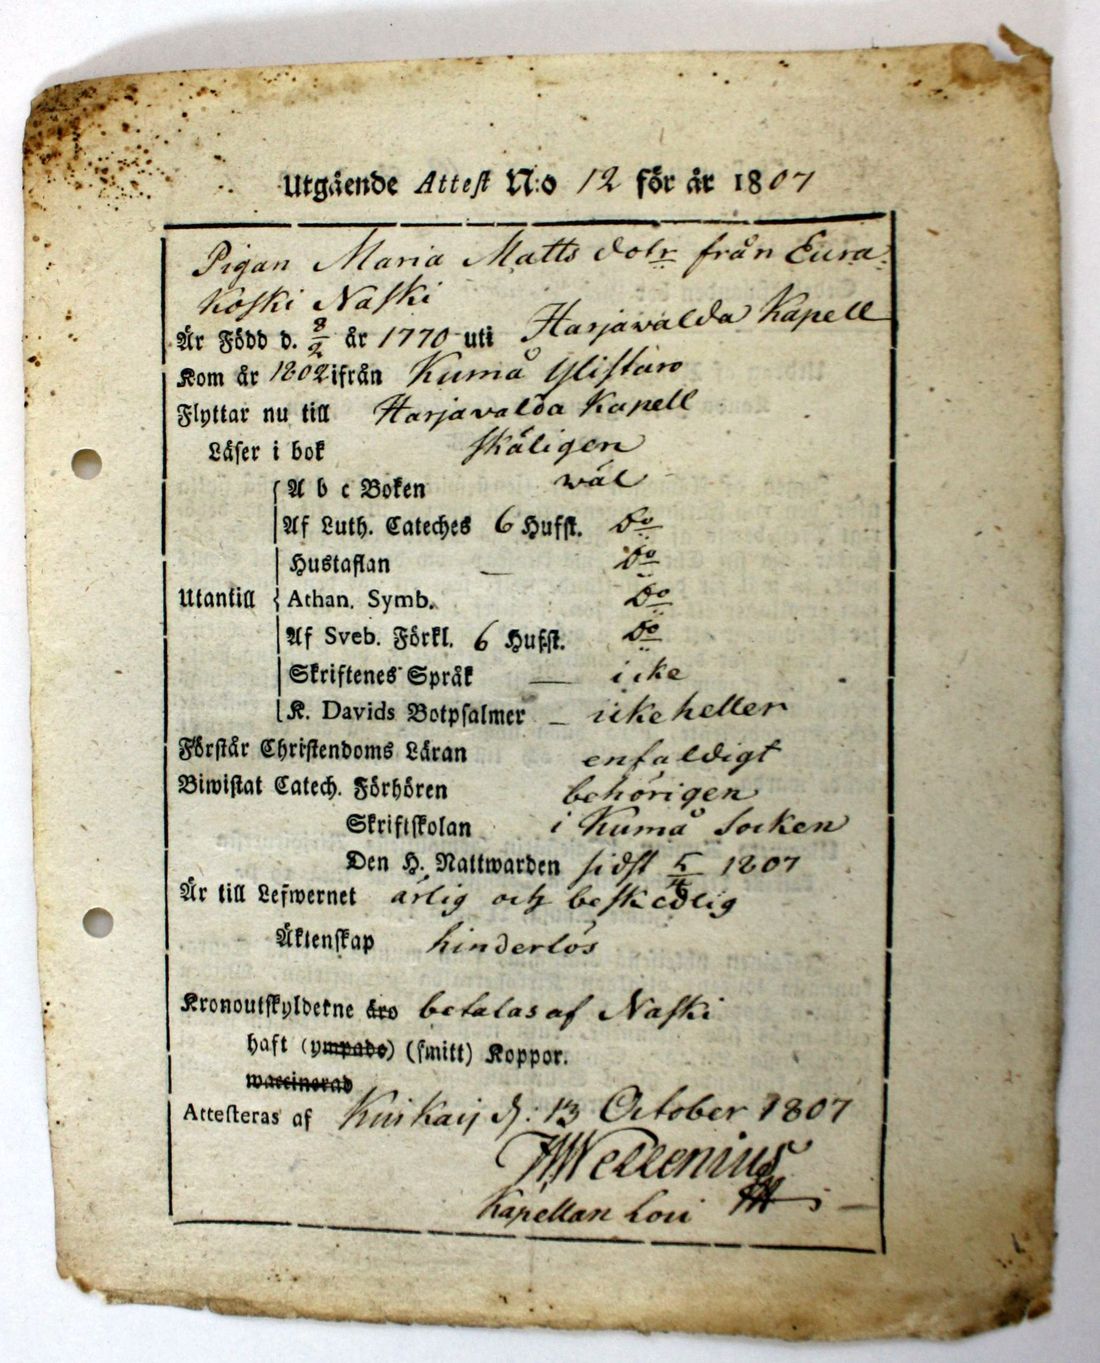 Utgående Attest N:o 12 för år 1807
Pigan Maria Matts dotr från Eura
Koski Naski
Är Född d. 8/2 år 1770 uti Harjavalda Kapell
Kom år 1802 ifrån Kumå Ylistaro
Flyttar nu till Harjavalda Kapell
Läser i bok skäligen
A b c Boken wäl
Af Luth. Cateches 6 Hufst. Do
Hustaflan — Do
Utantill Athan. Symb. Do
Af Sveb. Förkl. 6 Hufst. Do
Skriftenes Språk — icke
K. Davids Botpsalmer — icke heller
Förstår Christendoms Läran enfaldigt
Biwistat Catech. Förhören behörigen
Skriftskolan i Kumå Socken
Den H. Nattwarden sidst 1807
Är till Lefwernet ärlig och beskedlig
Äktenskap hinderlös
Kronoutskylderne äro betalas af Naski
haft (ympade) (smitt) Koppor.
waccinerad
Attesteras af d: 13 October 1807
Wellenius
Kapellan